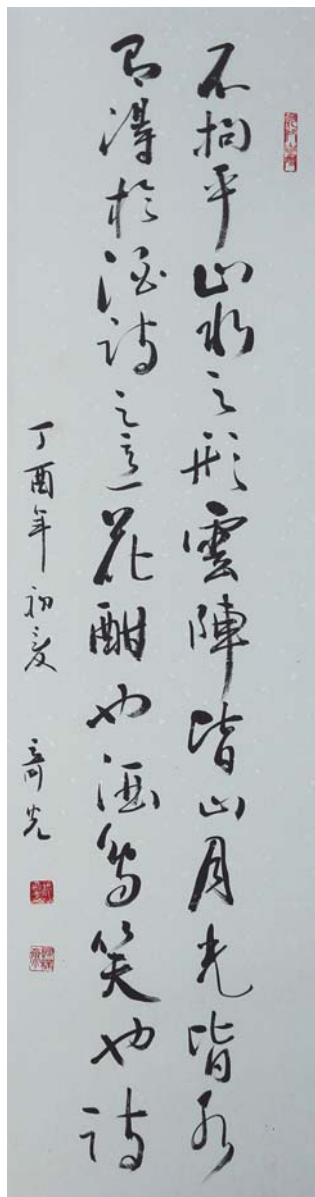 不拘乎山水之形雲陣皆山月光皆水
有得於酒詩之意花酣也酒鳥笑也詩
丁酉年初夏